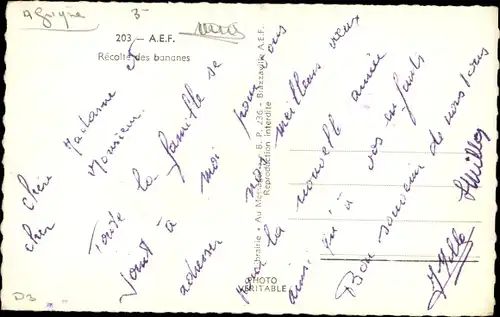 Afrique
3-
203 — A.E.F.
Récolte des bananes
Chère Madame et
cher Monsieur.
Toute la famille se
joint à moi pour vous
adresser nos meilleurs vœux
pour la nouvelle année
ainsi qu'à vos enfants
Bon souvenir de nous tous
JMille
Librairie • Au Messager B. P. 236 - Brazzaville A.E.F.
Reproduction interdite
PHOTO
VÉRITABLE
D3